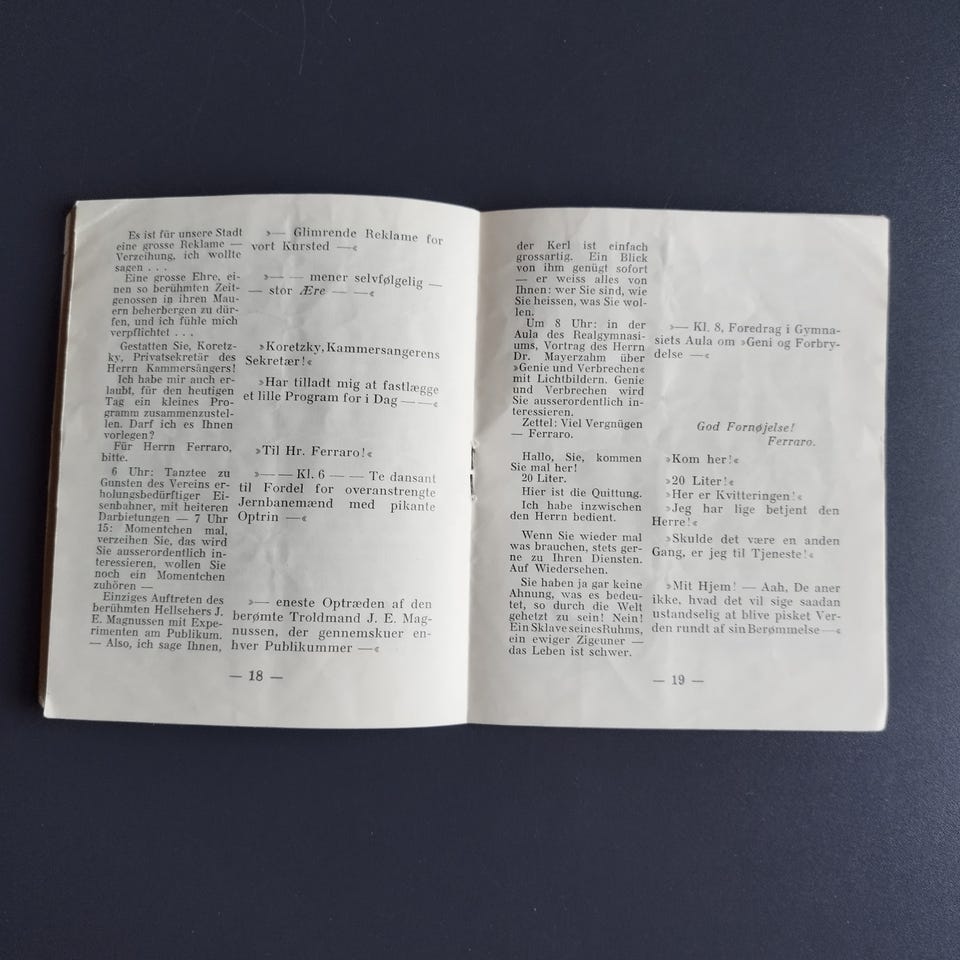 Es ist für unsere Stadt
eine grosse Reklame —
Verzeihung, ich wollte
sagen . . .
Eine grosse Ehre, ei-
nen so berühmten Zeit-
genossen in ihren Mau-
ern beherbergen zu dür-
fen, und ich fühle mich
verpflichtet . . .
Gestatten Sie, Koretz-
ky, Privatsekretär des
Herrn Kammersängers!
Ich habe mir auch er-
laubt, für den heutigen
Tag ein kleines Pro-
gramm zusammenzustel-
len. Darf ich es Ihnen
vorlegen?
Für Herrn Ferraro,
bitte.
6 Uhr: Tanztee zu
Gunsten des Vereins er-
holungsbedürftiger Ei-
senbahner, mit heiteren
Darbietungen — 7 Uhr
15: Momentchen mal,
verzeihen Sie, das wird
Sie ausserordentlich in-
teressieren, wollen Sie
noch ein Momentchen
zuhören —
Einziges Auftreten des
berühmten Hellsehers J.
E. Magnussen mit Expe-
rimenten am Publikum.
— Also, ich sage Ihnen,
»— Glimrende Reklame for
vort Kursted —«
»— — mener selvfølgelig —
— stor Ære — —«
»Koretzky, Kammersangerens
Sekretær!«
»Har tilladt mig at fastlægge
et lille Program for i Dag — —«
»Til Hr. Ferraro!«
»— — Kl. 6 — — Te dansant
til Fordel for overanstrengte
Jernbanemænd med pikante
Optrin —«
»— eneste Optræden af den
berømte Troldmand J. E. Mag-
nussen, der gennemskuer en-
hver Publikummer —«
— 18 —
der Kerl ist einfach
grossartig. Ein Blick
von ihm genügt sofort
— er weiss alles von
Ihnen: wer Sie sind, wie
Sie heissen, was Sie wol-
len.
Um 8 Uhr: in der
Aula des Realgymnasi-
ums, Vortrag des Herrn
Dr. Mayerzahm über
»Genie und Verbrechen«
mit Lichtbildern. Genie
und Verbrechen wird
Sie ausserordentlich in-
teressieren.
Zettel: Viel Vergnügen
— Ferraro.
Hallo, Sie, kommen
Sie mal her!
20 Liter.
Hier ist die Quittung.
Ich habe inzwischen
den Herrn bedient.
Wenn Sie wieder mal
was brauchen, stets ger-
ne zu Ihren Diensten.
Auf Wiedersehen.
Sie haben ja gar keine
Ahnung, was es bedeu-
tet, so durch die Welt
gehetzt zu sein! Nein!
Ein Sklave seines Ruhms,
ein ewiger Zigeuner —
das Leben ist schwer.
»— Kl. 8, Foredrag i Gymna-
siets Aula om »Geni og Forbry-
delse —«
God Fornøjelse!
Ferraro.
»Kom her!«
»20 Liter!«
»Her er Kvitteringen!«
»Jeg har lige betjent den
Herre!«
»Skulde det være en anden
Gang, er jeg til Tjeneste!«
»Mit Hjem! — Aah, De aner
ikke, hvad det vil sige saadan
ustandselig at blive pisket Ver-
den rundt af sin Berømmelse —«
— 19 —